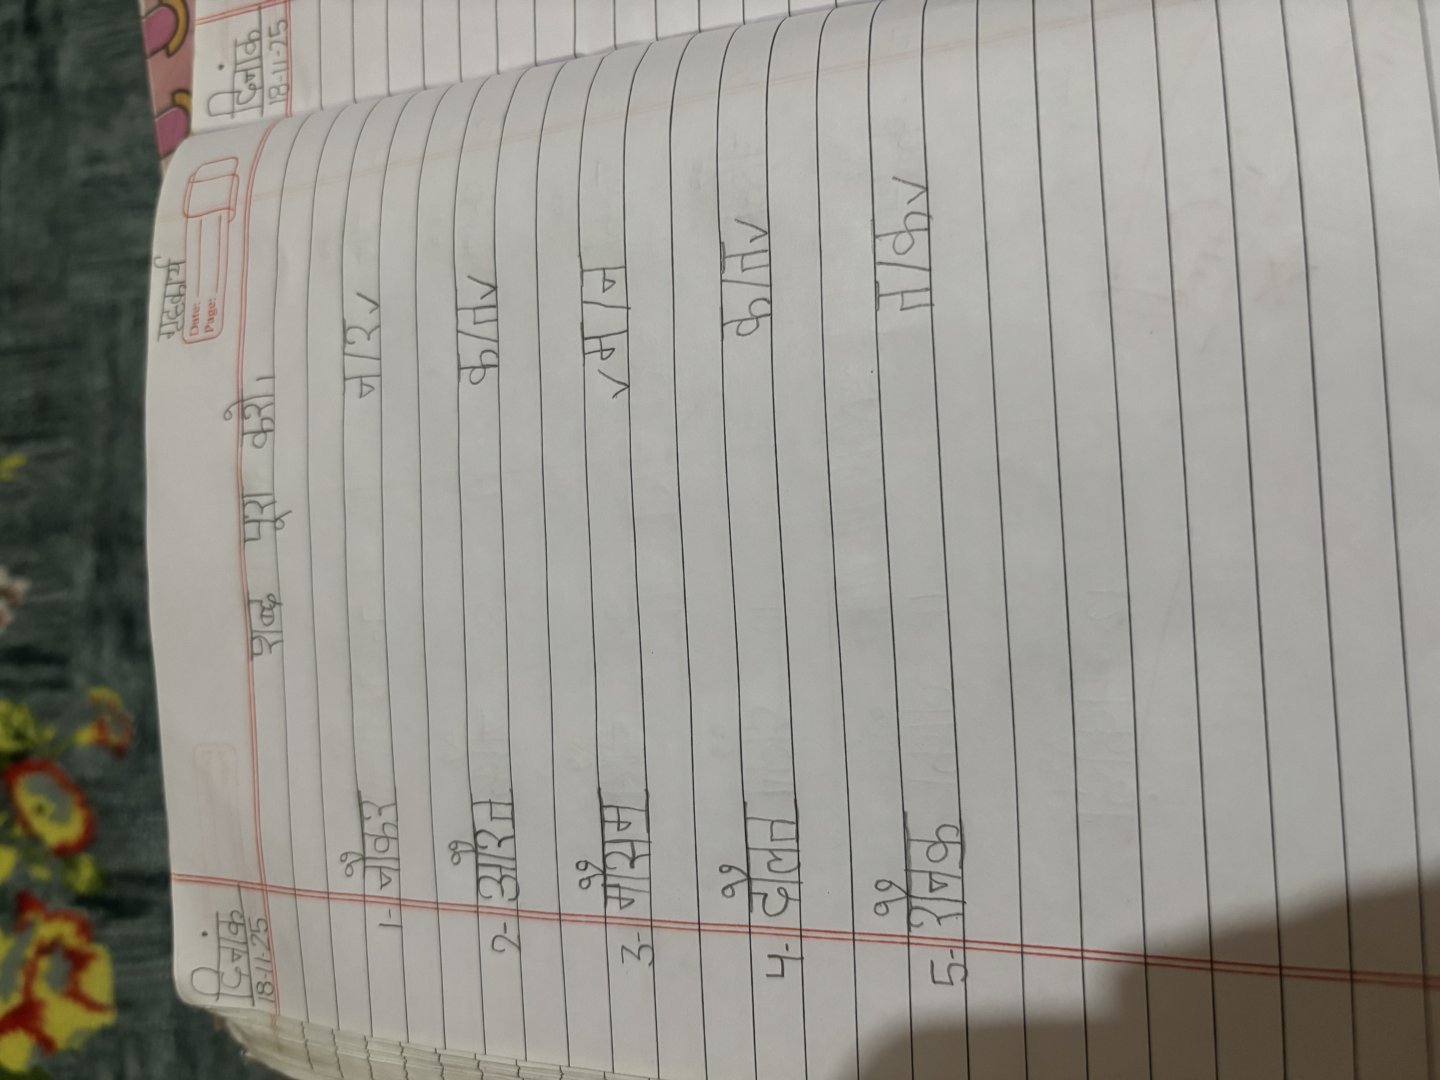 दिनांक
18-11-25
गृहकार्य
Date:
Page:
शब्द पूरा करो।
1- नौकर न/र✓
2- औरत क/त✓
3- मौसम ✓म/न
4- दौलत क/त✓
5- रौनक त/क✓
दिनांक
18-11-25